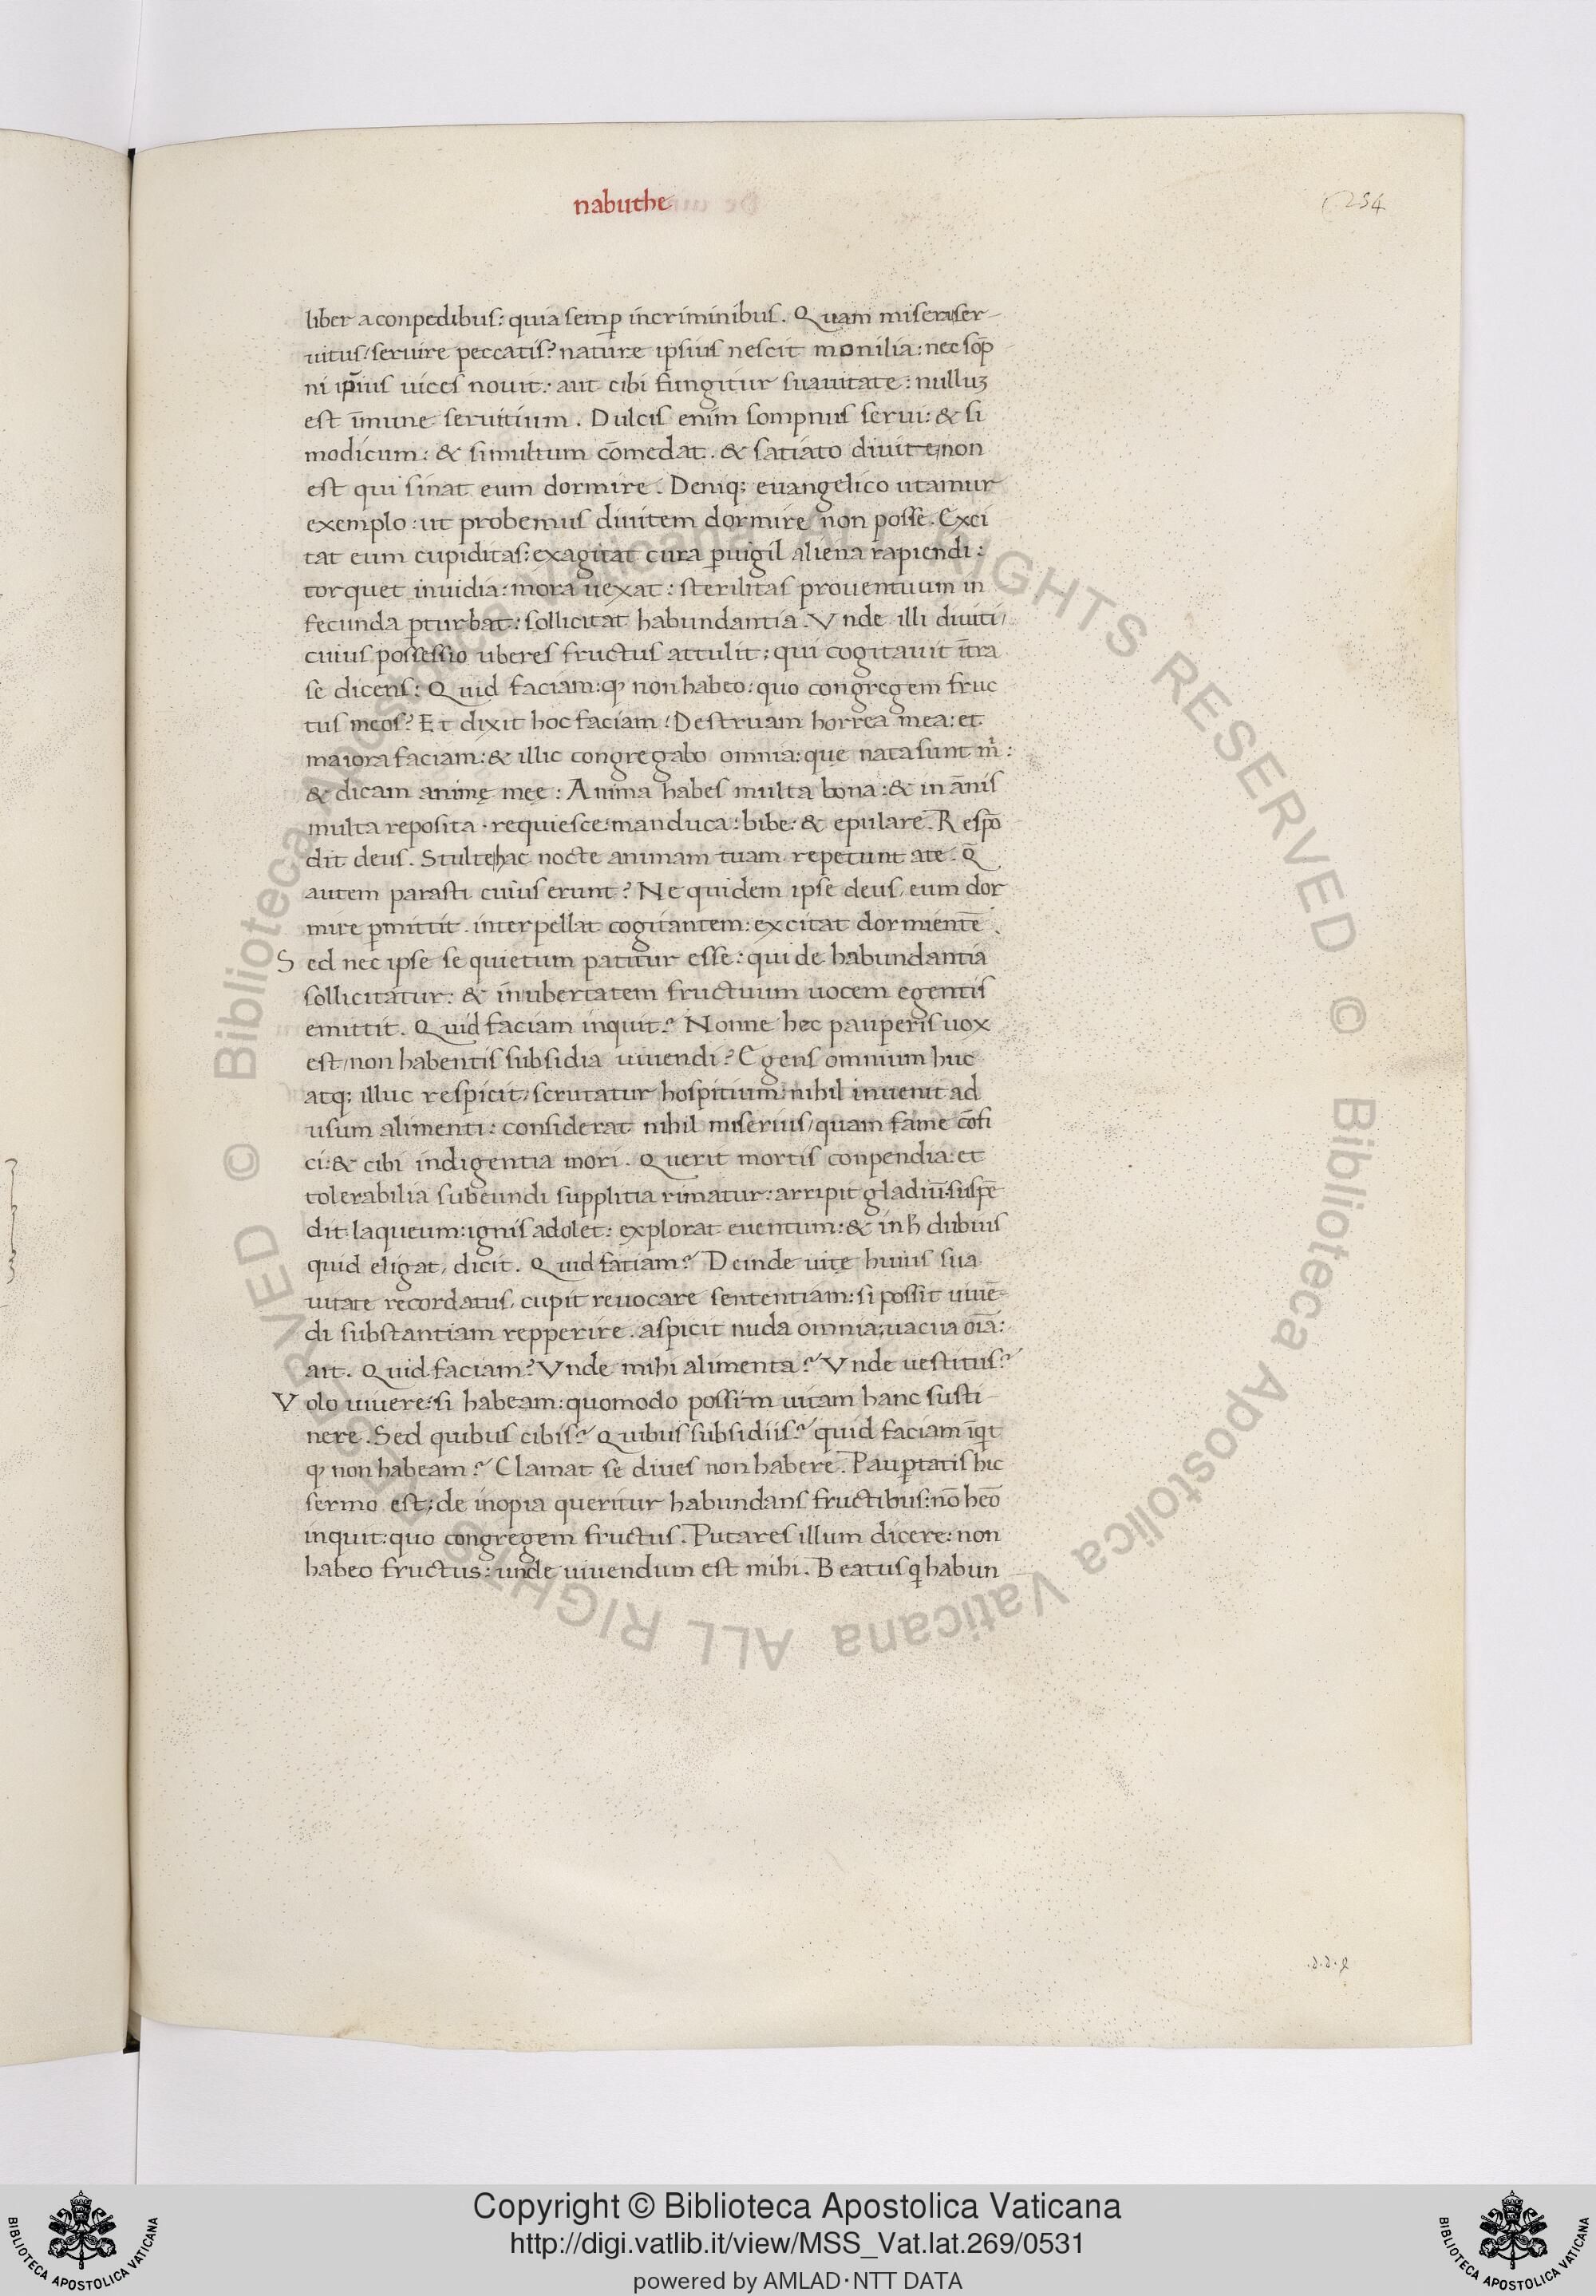 nabuthe
254
liber a conpedibus: quia semꝑ in criminibus. Quam misera ser-
uitus / seruire peccatis? nature ipsius nescit monilia: nec sop̄
ni ip̄ius uices nouit: aut cibi fungitur suauitate: nulluꝫ
est īmune seruitium. Dulcis enim sompnus serui: & si
modicum: & si multum cōmedat. & satiato diuite / non
est qui sinat eum dormire. Deniq; euangelico utamur
exemplo: ut probemus diuitem dormire non posse. Exci
tat eum cupiditas: exagitat cura ꝑuigil aliena rapiendi:
torquet inuidia: mora uexat: sterilitas prouentuum in
fecunda ꝑturbat: sollicitat habundantia. Vnde illi diuiti /
cuius possessio uberes fructus attulit: qui cogitauit īt̄ra
se dicens: Quid faciam: ꝙ non habeo: quo congregem fruc
tus meos? Et dixit hoc faciam: Destruam horrea mea: et
maiora faciam: & illic congregabo omnia: quę nata sunt m̄:
& dicam animę meę: Anima habes multa bona: & in ānis
multa reposita. requiesce: manduca: bibe: & epulare. Respō
dit deus. Stulte hac nocte animam tuam repetunt a te. Q̄
autem parasti cuius erunt? Ne quidem ipse deus eum dor
mire ꝑmittit. interpellat cogitantem: excitat dormientē.
Sed nec ipse se quietum patitur esse: qui de habundantia
sollicitatur: & in ubertatem fructuum uocem egentis
emittit. Quid faciam inquit? Nonne hec pauperis uox
est / non habentis subsidia uiuendi? Egens omnium huc
atq; illuc respicit / scrutatur hospitium: nihil inuenit ad
usum alimenti: considerat nihil miserius / quam fame cōfi
ci: & cibi indigentia mori. Querit mortis conpendia: et
tolerabilia subeundi supplitia rimatur: arripit gladiū: suspē
dit laqueum: ignis adolet: explorat euentum: & in h̄ dubius
quid eligat, dicit. Quid fatiam? Deinde uitę huius sua
uitate recordatus, cupit reuocare sententiam: si possit uiuē-
di substantiam repperire. aspicit nuda omnia: uacua oīa:
ait. Quid faciam? Vnde mihi alimenta? Vnde uestitus?
Volo uiuere: si habeam: quomodo possim uitam hanc susti-
nere. Sed quibus cibis? Quibus subsidiis? quid faciam īqt
ꝙ non habeam? Clamat se diues non habere. Pauꝑtatis hic
sermo est: de inopia queritur habundans fructibus: nō heō
inquit: quo congregem fructus. Putares illum dicere: non
habeo fructus: unde uiuendum est mihi. Beatus q habun
Copyright © Biblioteca Apostolica Vaticana
http://digi.vatlib.it/view/MSS_Vat.lat.269/0531
powered by AMLAD·NTT DATA
BIBLIOTECA APOSTOLICA VATICANA
BIBLIOTECA APOSTOLICA VATICANA
© Biblioteca Apostolica Vaticana ALL RIGHTS RESERVED
© Biblioteca Apostolica Vaticana ALL RIGHTS RESERVED